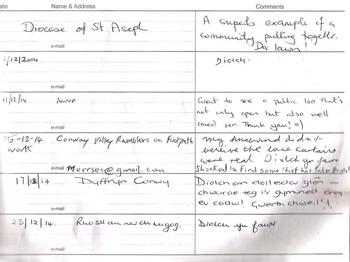 ate Name & Address Comments
Diocese of St Asaph
A superb example of a
community pulling together.
Da iawn!
e-mail
/12/2014 Diolch
e-mail
11/12/14 Anna
Great to see a public loo that's
not only open but also well
cared for. Thank you! =)
e-mail
15-12-14 Conway Valley Ramblers on Footpath
work
My husband didn't
believe the lace curtains
were real. Diolch yn fawr
e-mail @gmail.com
Shocked to find some
17/12/14 Dyffryn Conwy
Diolch am doiledau glân
eu cadw! Gwerth chweil!!
e-mail
23/12/14.
Diolch yn fawr
e-mail